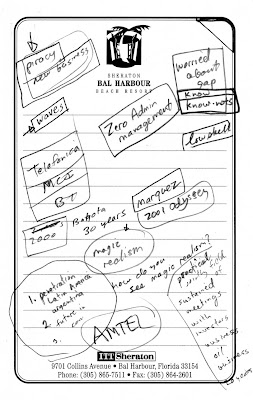 piracy
new business
SHERATON
BAL HARBOUR
BEACH RESORT
worried
about
gap
know
know-nots
waves
Zero Admin
management
Telefonica
MCI
BT
marquez
2001 odyssey
2000
30 years
magic
realism
how do you
see magic realism?
1. penetration
Latin America
argentina
2. future in
3.
practical
sustained
meetings
with
investors
business
AMTEL
ITT Sheraton
9701 Collins Avenue • Bal Harbour, Florida 33154
Phone: (305) 865-7511 • Fax: (305) 864-2601